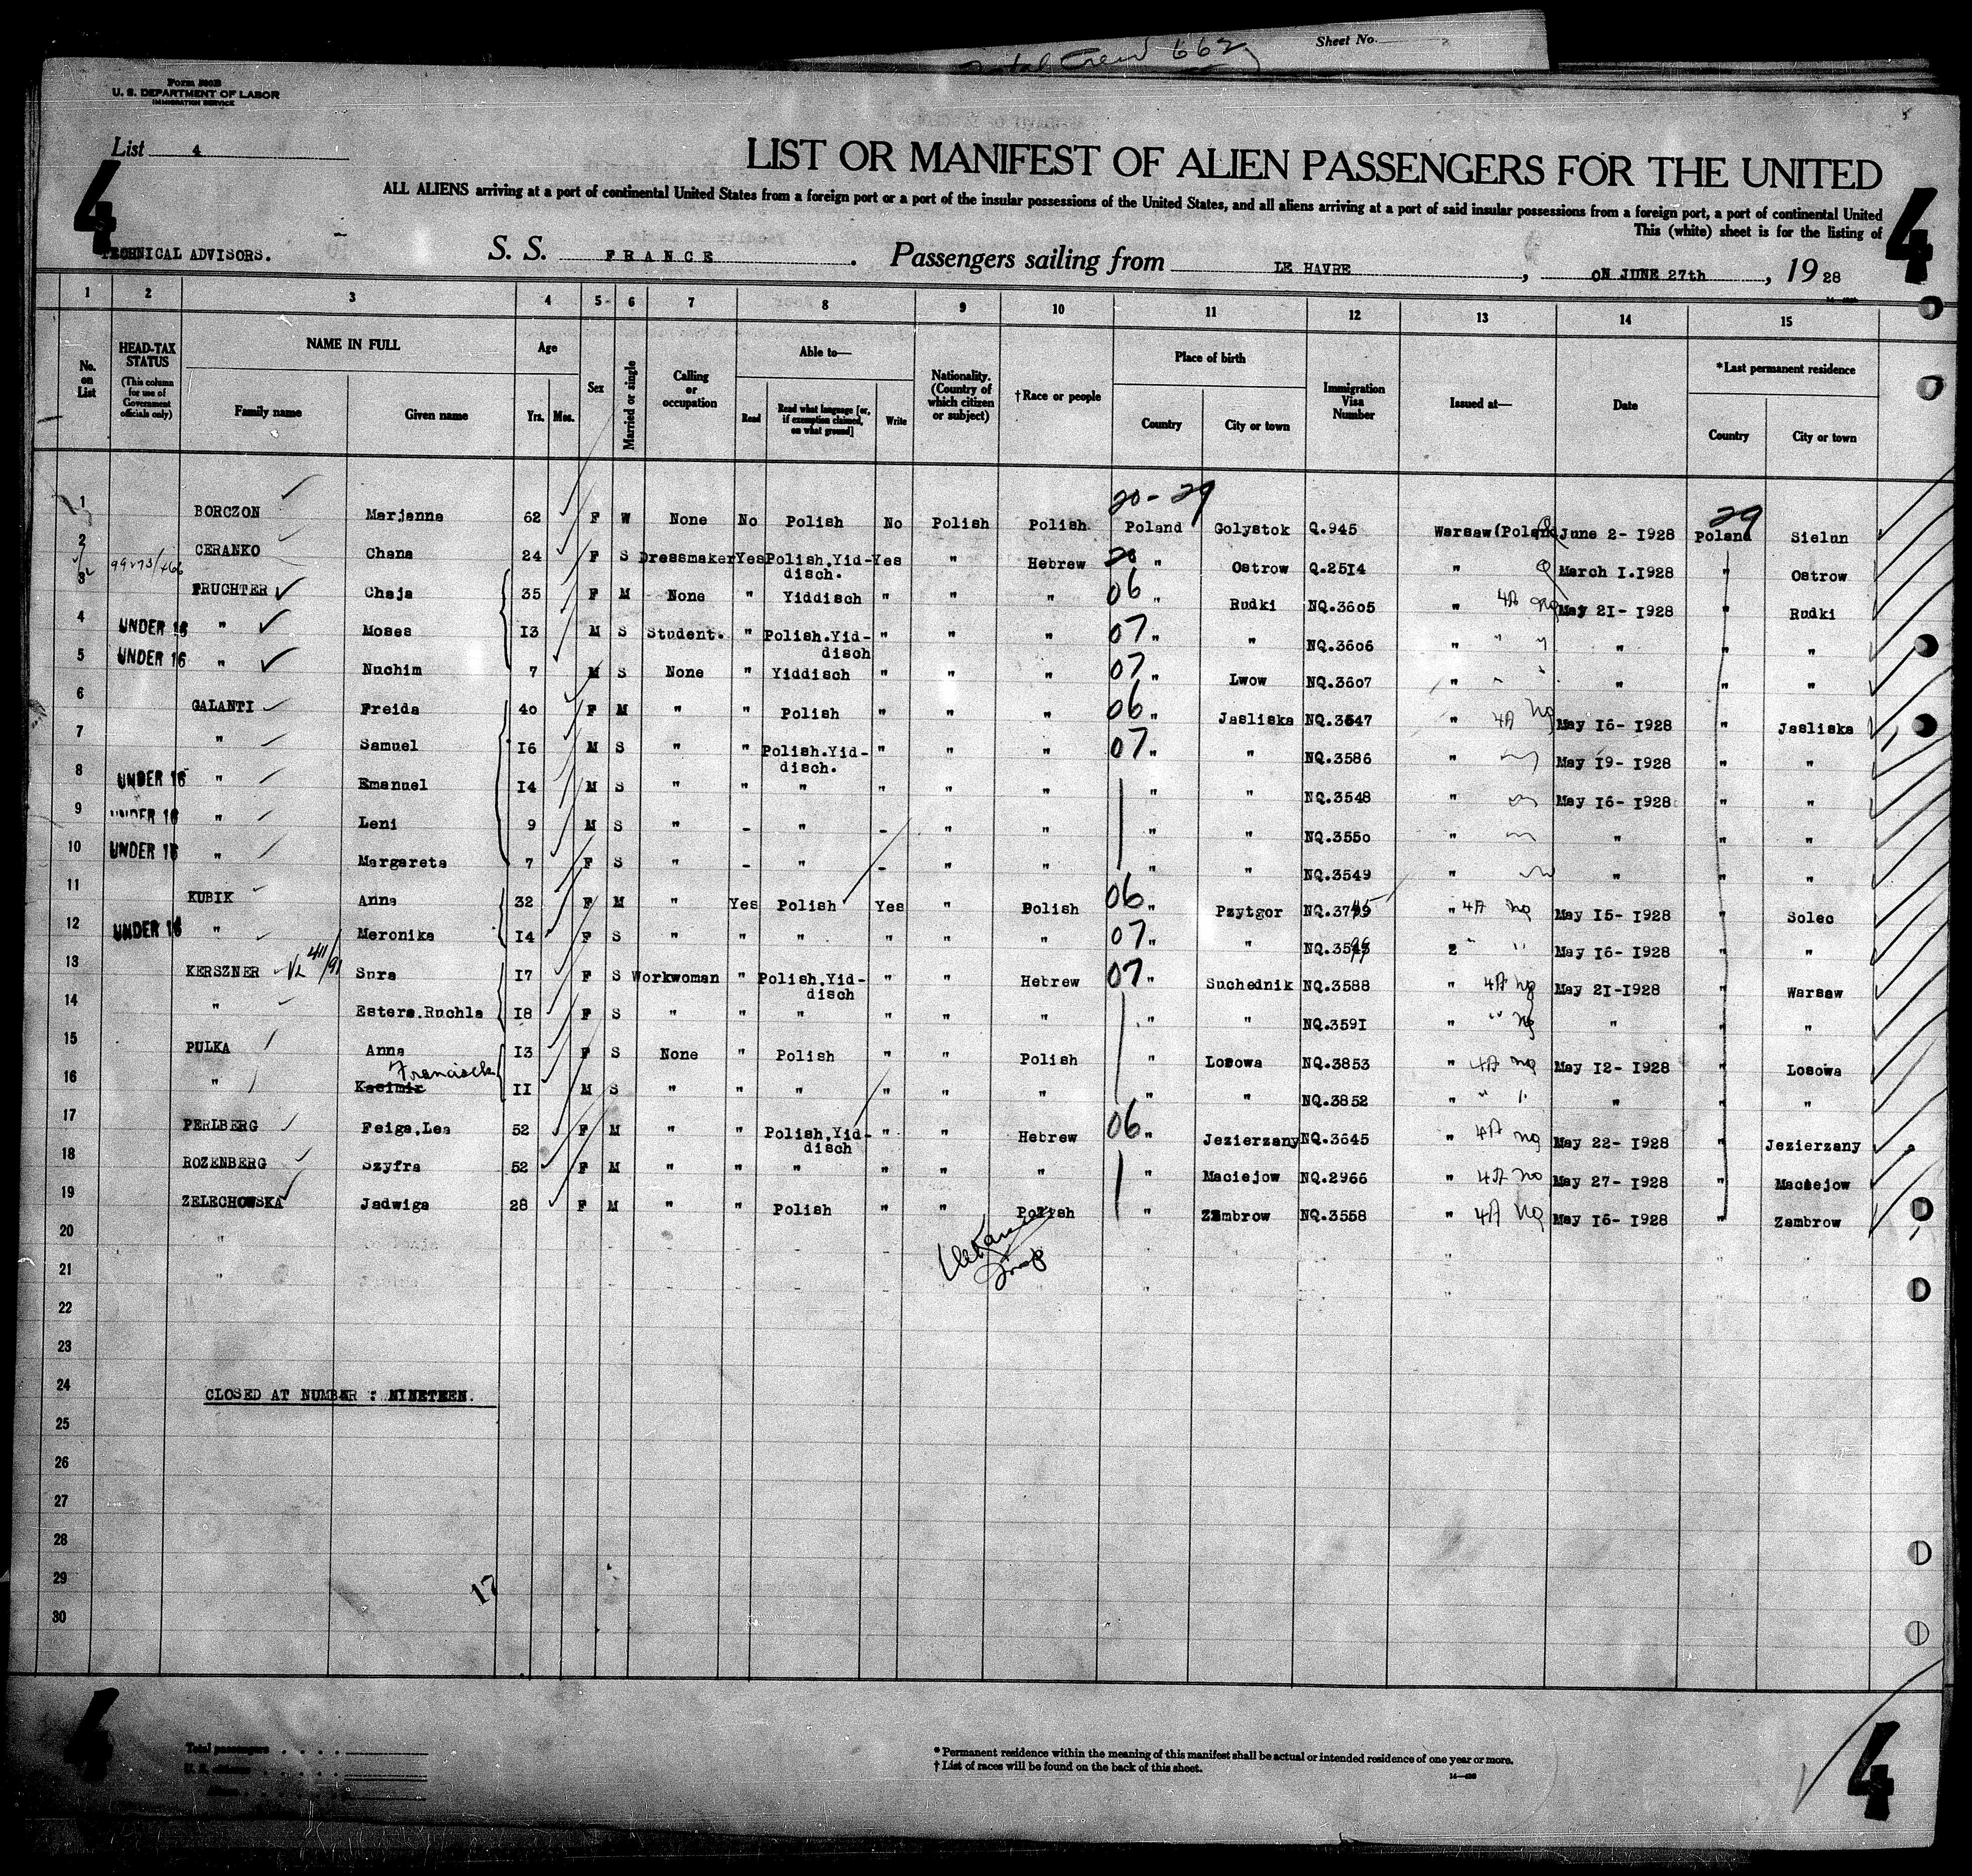 Total Crew 662
Sheet No.
U. S. DEPARTMENT OF LABOR
IMMIGRATION SERVICE
List 4
4
LIST OR MANIFEST OF ALIEN PASSENGERS FOR THE UNITED
4
ALL ALIENS arriving at a port of continental United States from a foreign port or a port of the insular possessions of the United States, and all aliens arriving at a port of said insular possessions from a foreign port, a port of continental United
This (white) sheet is for the listing of
TECHNICAL ADVISORS. S. S. FRANCE. Passengers sailing from LE HAVRE, ON JUNE 27th, 19 28
1 2 3 4 5 6 7 8 9 10 11 12 13 14 15
No. on List
HEAD-TAX STATUS (This column for use of Government officials only)
NAME IN FULL Family name Given name
Age Yrs. Mos.
Sex
Married or single
Calling or occupation
Able to— Read Read what language [or, if exemption claimed, on what ground] Write
Nationality. (Country of which citizen or subject)
†Race or people
Place of birth Country City or town
Immigration Visa Number
Issued at—
Date
*Last permanent residence Country City or town
20 - 29 29
1 BORCZON Marjanna 62 F W None No Polish No Polish Polish Poland Golystok Q.945 Warsaw (Poland June 2- 1928 Poland Sielun
2 CERANKO Chana 24 F S Dressmaker Yes Polish.Yiddisch. Yes " Hebrew 20 " Ostrow Q.2514 " Q March 1.1928 " Ostrow
3 FRUCHTER Chaja 35 F M None " Yiddisch " " " 06 " Rudki NQ.3605 " 4A NQ May 21- 1928 " Rudki
4 UNDER 16 " Moses 13 M S Student. " Polish.Yiddisch " " " 07 " " NQ.3606 " " " " " "
5 UNDER 16 " Nuchim 7 M S None " Yiddisch " " " 07 " Lwow NQ.3607 " " " " " "
6 GALANTI Freida 40 F M " " Polish " " " 06 " Jasliska NQ.3547 " 4A NQ May 16- 1928 " Jasliska
7 " Samuel 16 M S " " Polish.Yiddisch. " " " 07 " " NQ.3586 " May 19- 1928 " "
8 UNDER 16 " Emanuel 14 M S " " " " " " " " NQ.3548 " May 16- 1928 " "
9 UNDER 16 " Leni 9 M S " - " - " " " " NQ.3550 " " " "
10 UNDER 16 " Margareta 7 F S " - " - " " " " NQ.3549 " " " "
11 KUBIK Anna 32 F M " Yes Polish Yes " Polish 06 " Pzytgor " 4A NQ May 15- 1928 " Solec
12 UNDER 16 " Meronika 14 F S " " " " " " 07 " " 2 " " May 16- 1928 " "
13 KERSZNER Sura 17 F S Workwoman " Polish.Yiddisch " " Hebrew 07 " Suchednik NQ.3588 " 4A NQ May 21-1928 " Warsaw
14 " Estera.Ruchla 18 F S " " " " " " " " NQ.3591 " " NQ " " "
15 PULKA Anna 13 F S None " Polish " " Polish " Losowa NQ.3853 " 4A NQ May 12- 1928 " Losowa
Francisek
16 " Kasimir 11 M S " " " " " " " " NQ.3852 " " " " " "
17 PERLBERG Feiga.Lea 52 F M " " Polish.Yiddisch " " Hebrew 06 " Jezierzany NQ.3645 " 4A NQ May 22- 1928 " Jezierzany
18 ROZENBERG Szyfra 52 F M " " " " " " " Maciejow NQ.2966 " 4A NQ May 27- 1928 " Maciejow
19 ZELECHOWSKA Jadwiga 28 F M " " Polish " " Polish " Zambrow NQ.3558 " 4A NQ May 16- 1928 " Zambrow
20
21
22
23
24 CLOSED AT NUMBER : NINETEEN.
25
26
27
28
29
17
30
4
Total passengers
* Permanent residence within the meaning of this manifest shall be actual or intended residence of one year or more.
† List of races will be found on the back of this sheet.
4